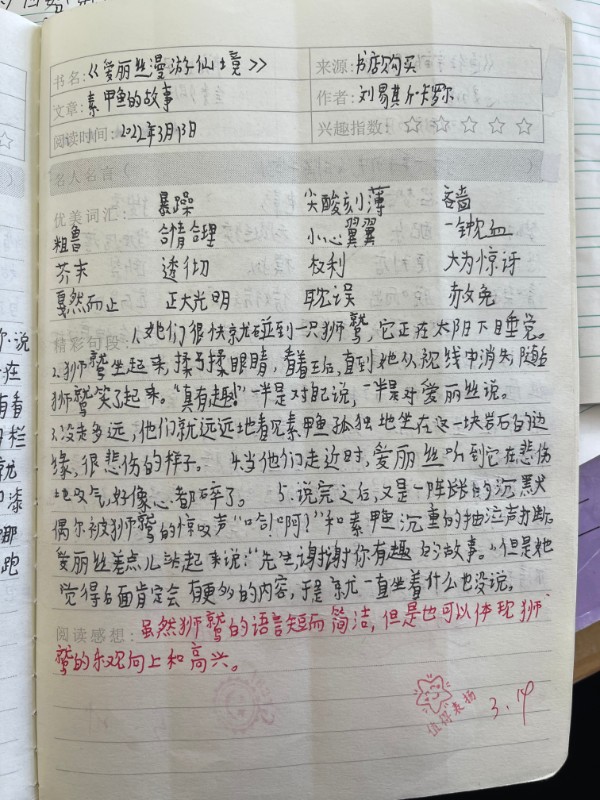 书名:《爱丽丝漫游仙境》 来源:书店购买
文章:素甲鱼的故事 作者:刘易其尔·卡罗尔
阅读时间:2022年3月13日 兴趣指数:☆☆☆☆☆
名人名言
优美词汇: 暴躁 尖酸刻薄 吝啬
粗鲁 合情合理 小心翼翼 一针见血
芥末 透彻 权利 大为惊讶
戛然而止 正大光明 耽误 赦免
精彩句段: 1.她们很快就碰到一只狮鹫,它正在太阳下睡觉。
2.狮鹫坐起来,揉了揉眼睛,看着王后,直到她从视线中消失,随后
狮鹫笑了起来。“真有趣!”一半是对自己说,一半是对爱丽丝说。
3.没走多远,他们就远远地看见素甲鱼孤独地坐在这一块岩石的边
缘,很悲伤的样子。 4.当他们走近时,爱丽丝听到它在悲伤
地叹气,好像心都碎了。 5.说完之后,又是一阵的沉默
偶尔被狮鹫的惊叹声“哈!啊?”和素甲鱼沉重的抽泣声打断。
爱丽丝差点儿站起来说:“先生,谢谢你有趣的故事。”但是她
觉得后面肯定会有更多的内容,于是就一直坐着什么也没说。
阅读感想: 虽然狮鹫的语言短而简洁,但是也可以体现狮
鹫的乐观向上和高兴。
值得表扬 3.14